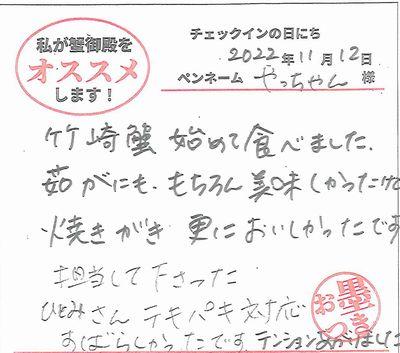 私が蟹御殿を
オススメ
します！
チェックインの日にち
2022年11月12日
ペンネーム やっちゃん 様
竹崎蟹 始めて食べました.
茹がにも、もちろん美味しかったけど
焼きがき 更においしかったです
担当して下さった
ひとみさん テキパキ対応
すばらしかったです.テンション
お墨つき